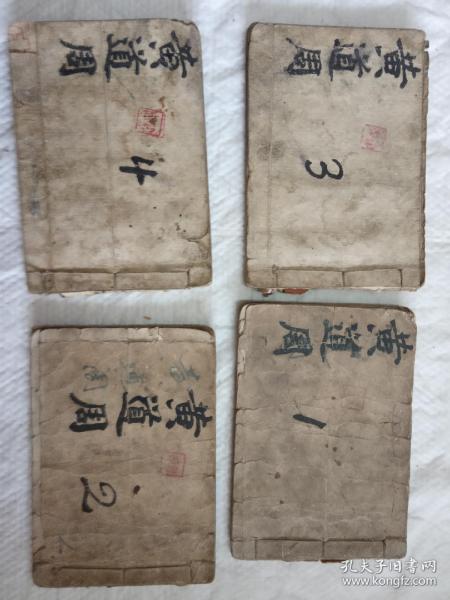 黄道周
4
黄道周
3
黄道周
2
黄道周
1
孔夫子旧书网
www.kongfz.com